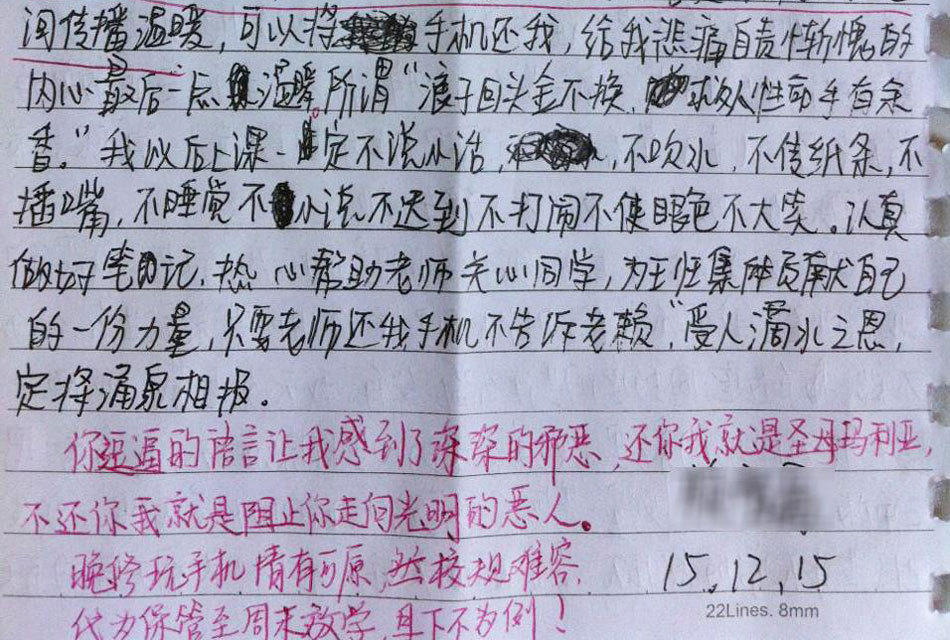 间传播温暖，可以将手机还我，给我悲痛自责惭愧的
内心最后一点温暖，所谓“浪子回头金不换，求人性命手有余
香。”我以后上课一定不说小话，不吹水，不传纸条，不
播嘴，不睡觉不小说不迟到不打闹不使眼色不大笑。认真
做好笔记，热心帮助老师关心同学，为王班集体贡献自己
的一份力量，只要老师还我手机不告诉老赖，“受人滴水之恩，
定将涌泉相报。
你逗逼的语言让我感到了深深的邪恶，还你我就是圣母玛利亚，
不还你我就是阻止你走向光明的恶人。
晚修玩手机，情有可原，然校规难容，
15.12.15
代为保管至周末放学，且下不为例！
22Lines. 8mm